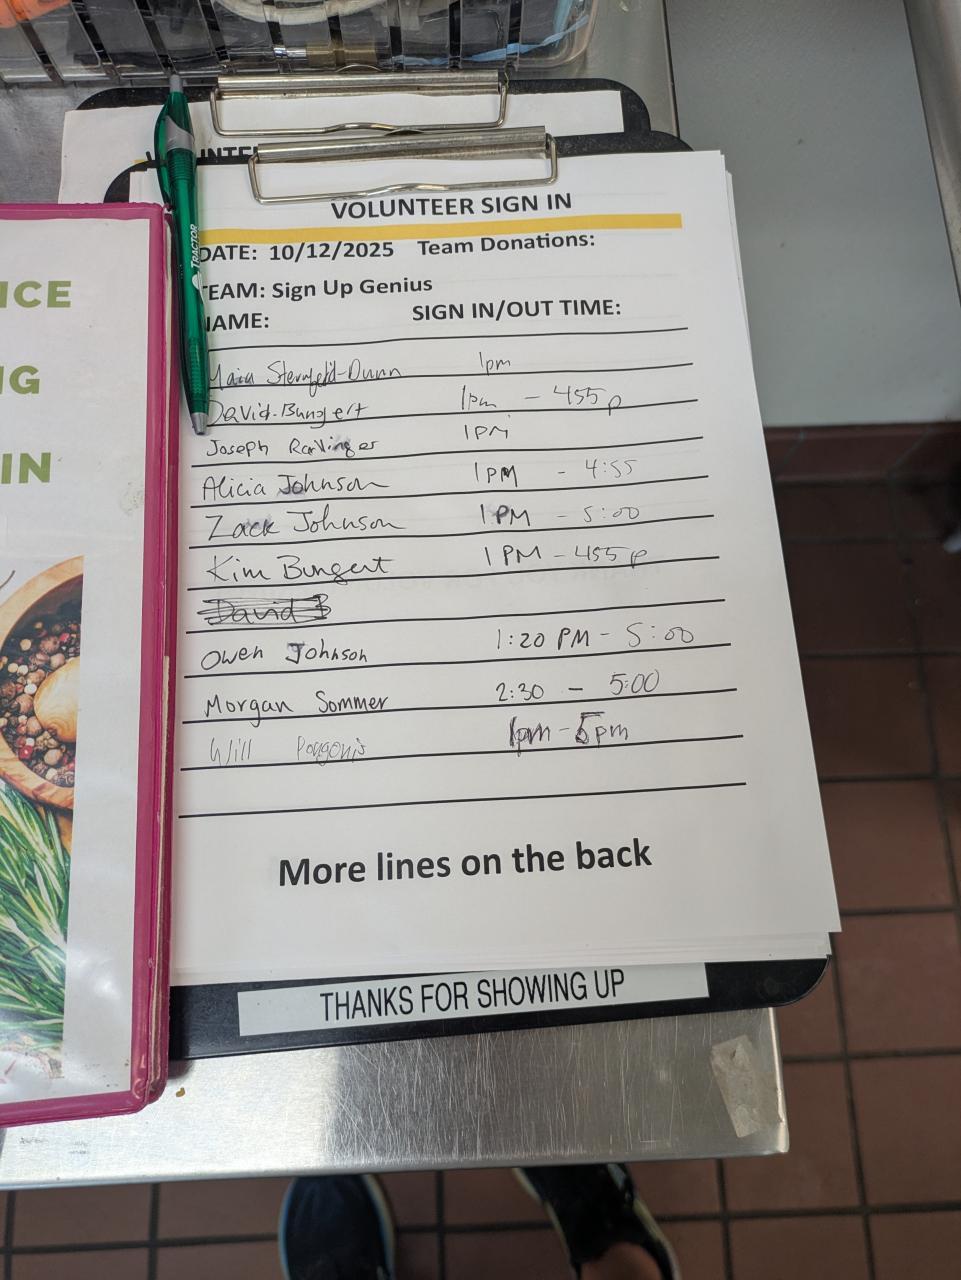 VOLUNTEER SIGN IN
DATE: 10/12/2025 Team Donations:
TEAM: Sign Up Genius
NAME: SIGN IN/OUT TIME:
Sternfeld-Dunn 1pm
David Bungert 1pm - 455p
Joseph 1PM
Alicia Johnson 1PM - 4:55
Zack Johnson 1PM - 5:00
Kim Bungert 1PM - 455p
David B
Owen Johnson 1:20 PM - 5:00
Morgan Sommer 2:30 - 5:00
Will 1pm - 5pm
More lines on the back
THANKS FOR SHOWING UP
TRACTOR
ICE
NG
IN